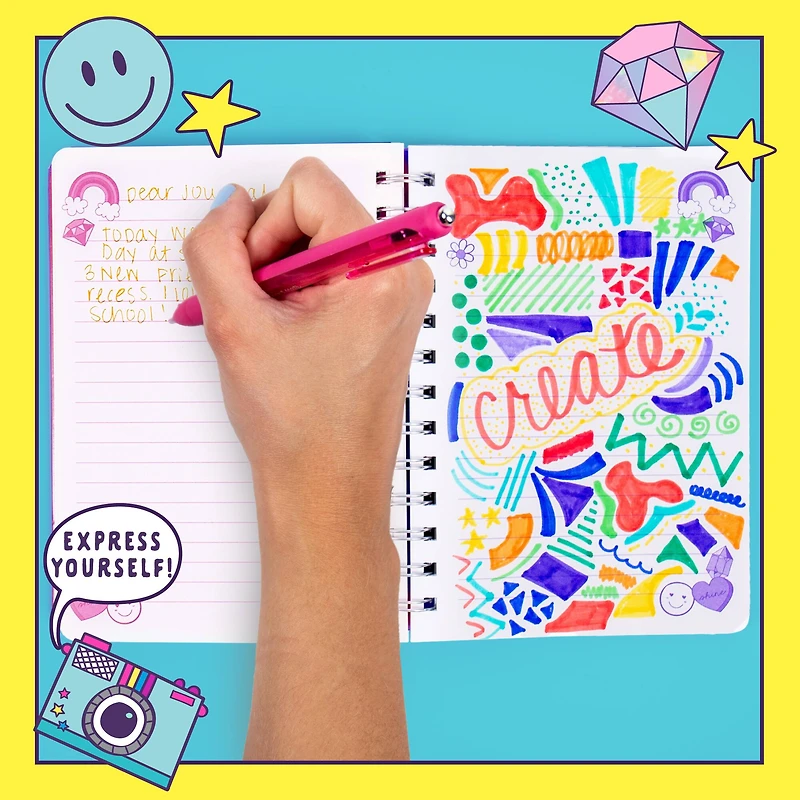 Dear Journal
TODAY
Day at
3 New
recess. I
school!
create
shine
EXPRESS
YOURSELF!